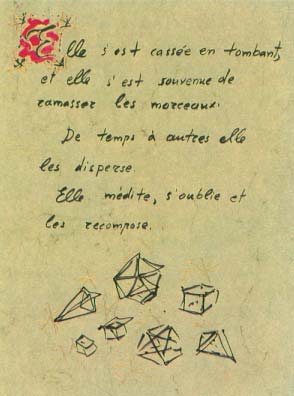 Elle s'est cassée en tombant,
et elle s'est souvenue de
ramasser les morceaux.
De temps à autres elle
les disperse.
Elle médite, s'oublie et
les recompose.